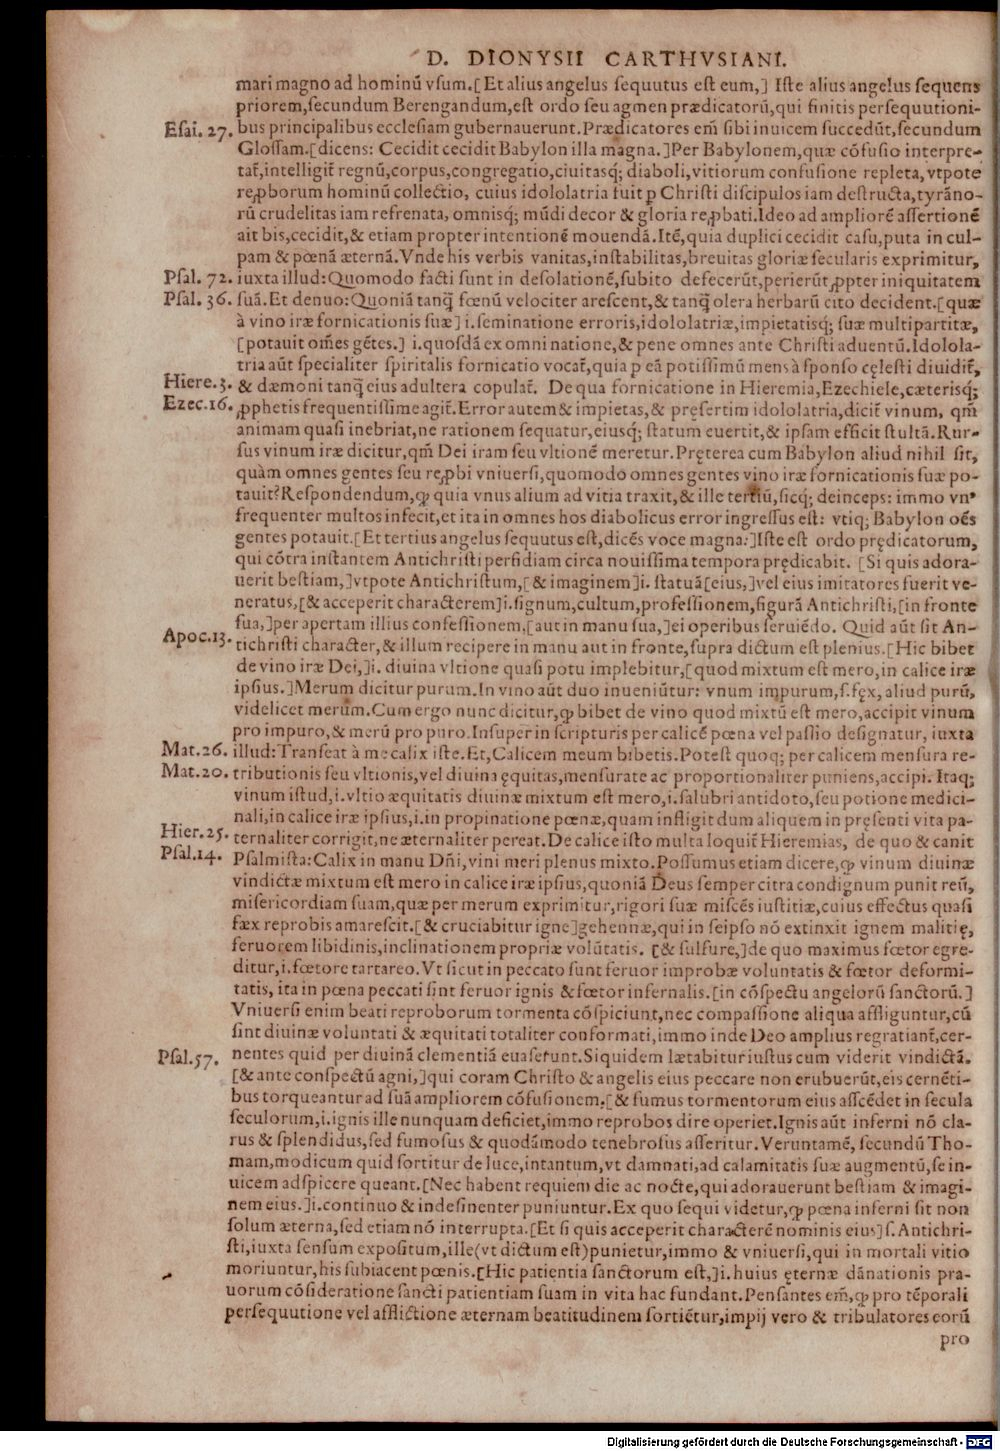 D. DIONYSII CARTHVSIANI.
mari magno ad hominũ vsum.[Et alius angelus sequutus est eum,] Iste alius angelus sequens
priorem,secundum Berengandum,est ordo seu agmen prædicatorũ,qui finitis persequutioni-
Esai. 27. bus principalibus ecclesiam gubernauerunt.Prædicatores em̃ sibi inuicem succedũt,secundum
Glossam.[dicens: Cecidit cecidit Babylon illa magna.]Per Babylonem,quæ cõfusio interpre-
tat̃,intelligit̃ regnũ,corpus,congregatio,ciuitasq́; diaboli,vitiorum confusione repleta,vtpote
reꝓborum hominũ collectio, cuius idololatria fuit ꝑ Christi discipulos iam destructa,tyrãno-
rũ crudelitas iam refrenata, omnisq́; mũdi decor & gloria reꝓbati.Ideo ad ampliorẽ assertionẽ
ait bis,cecidit,& etiam propter intentionẽ mouendã.Itẽ,quia duplici cecidit casu,puta in cul-
pam & pœnã æternã.Vnde his verbis vanitas,instabilitas,breuitas gloriæ secularis exprimitur,
Psal. 72. iuxta illud:Quomodo facti sunt in desolationẽ,subito defecerũt,perierũt ꝓpter iniquitatem
Psal. 36. suã.Et denuo:Quoniã tanq̃ fœnũ velociter arescent,& tanq̃ olera herbarũ cito decident.[quæ
à vino iræ fornicationis suæ] i.seminatione erroris,idololatriæ,impietatisq́; suæ multipartitæ,
[potauit om̃es gẽtes.] i.quosdã ex omni natione,& pene omnes ante Christi aduentũ.Idolola-
tria aũt specialiter spiritalis fornicatio vocat̃,quia ꝑ eã potissimũ mens à sponso cęlesti diuidit̃,
Hiere.3. & dæmoni tanq̃ eius adultera copulat̃. De qua fornicatione in Hieremia,Ezechiele,cæterisq́;
Ezec.16. ꝓphetis frequentissime agit̃.Error autem & impietas,& pręsertim idololatria,dicit̃ vinum, qm̃
animam quasi inebriat,ne rationem sequatur,eiusq́; statum euertit,& ipsam efficit stultã.Rur-
sus vinum iræ dicitur,qm̃ Dei iram seu vltionẽ meretur.Pręterea cum Babylon aliud nihil sit,
quàm omnes gentes seu reꝓbi vniuersi,quomodo omnes gentes vino iræ fornicationis suæ po-
tauit?Respondendum,ꝙ quia vnus alium ad vitia traxit,& ille tertiũ,sicq́; deinceps: immo vnꝰ
frequenter multos infecit,et ita in omnes hos diabolicus error ingressus est: vtiq; Babylon oẽs
gentes potauit.[Et tertius angelus sequutus est,dicẽs voce magna:]Iste est ordo prędicatorum,
qui cõtra instantem Antichristi perfidiam circa nouissima tempora prędicabit. [Si quis adora-
uerit bestiam,]vtpote Antichristum,[& imaginem]i. statuã[eius,]vel eius imitatores fuerit ve-
neratus,[& acceperit characterem]i.signum,cultum,professionem,figurã Antichristi,[in fronte
sua,]per apertam illius confessionem,[aut in manu sua,]ei operibus seruiẽdo. Quid aũt sit An-
Apoc.13. tichristi character,& illum recipere in manu aut in fronte,supra dictum est plenius.[Hic bibet
de vino iræ Dei,]i. diuina vltione quasi potu implebitur,[quod mixtum est mero,in calice iræ
ipsius.]Merum dicitur purum.In vino aũt duo inueniũtur: vnum impurum,s.fęx,aliud purũ,
videlicet merum.Cum ergo nunc dicitur,ꝙ bibet de vino quod mixtũ est mero,accipit vinum
pro impuro,& merũ pro puro.Insuper in scripturis per calicẽ pœna vel passio designatur, iuxta
Mat.26. illud:Transeat à me calix iste.Et,Calicem meum bibetis.Potest quoq; per calicem mensura re-
Mat.20. tributionis seu vltionis,vel diuina ęquitas,mensurate ac proportionaliter puniens,accipi. Itaq;
vinum istud,i.vltio æquitatis diuinæ mixtum est mero,i.salubri antidoto,seu potione medici-
nali,in calice iræ ipsius,i.in propinatione pœnæ,quam infligit dum aliquem in pręsenti vita pa-
Hier.25. ternaliter corrigit,ne æternaliter pereat.De calice isto multa loquit̃ Hieremias, de quo & canit
Psal.14. Psalmista:Calix in manu Dñi,vini meri plenus mixto.Possumus etiam dicere,ꝙ vinum diuinæ
vindictæ mixtum est mero in calice iræ ipsius,quoniã Deus semper citra condignum punit reũ,
misericordiam suam,quæ per merum exprimitur,rigori suæ miscẽs iustitiæ,cuius effectus quasi
fæx reprobis amarescit.[& cruciabitur igne]gehennæ,qui in seipso nõ extinxit ignem malitię,
feruorem libidinis,inclinationem propriæ volũtatis. [& sulfure,]de quo maximus fœtor egre-
ditur,i.fœtore tartareo.Vt sicut in peccato sunt feruor improbæ voluntatis & fœtor deformi-
tatis, ita in pœna peccati sint feruor ignis & fœtor infernalis.[in cõspectu angelorũ sanctorũ.]
Vniuersi enim beati reproborum tormenta cõspiciunt,nec compassione aliqua affliguntur,cũ
sint diuinæ voluntati & æquitati totaliter conformati,immo inde Deo amplius regratiant̃,cer-
Psal.57. nentes quid per diuinã clementiã euaserunt.Siquidem lætabitur iustus cum viderit vindictã.
[& ante conspectũ agni,]qui coram Christo & angelis eius peccare non erubuerũt,eis cernẽti-
bus torqueantur ad suã ampliorem cõfusionem.[& fumus tormentorum eius ascẽdet in secula
seculorum,i.ignis ille nunquam deficiet,immo reprobos dire operiet.Ignis aũt inferni nõ cla-
rus & splendidus,sed fumosus & quodãmodo tenebrosus asseritur.Veruntamẽ, secundũ Tho-
mam,modicum quid sortitur de luce,intantum,vt damnati,ad calamitatis suæ augmentũ,se in-
uicem adspicere queant.[Nec habent requiem die ac nocte,qui adorauerunt bestiam & imagi-
nem eius.]i.continuo & indesinenter puniuntur.Ex quo sequi videtur,ꝙ pœna inferni sit non
solum æterna,sed etiam nõ interrupta.[Et si quis acceperit characterẽ nominis eius]s.Antichri-
sti,iuxta sensum expositum,ille(vt dictum est)punietur,immo & vniuersi,qui in mortali vitio
moriuntur,his subiacent pœnis.[Hic patientia sanctorum est,]i.huius ęternæ dãnationis pra-
uorum cõsideratione sancti patientiam suam in vita hac fundant.Pensantes em̃,ꝙ pro tẽporali
persequutione vel afflictione æternam beatitudinem sortiẽtur,impij vero & tribulatores eorũ
pro
Digitalisierung gefördert durch die Deutsche Forschungsgemeinschaft - DFG